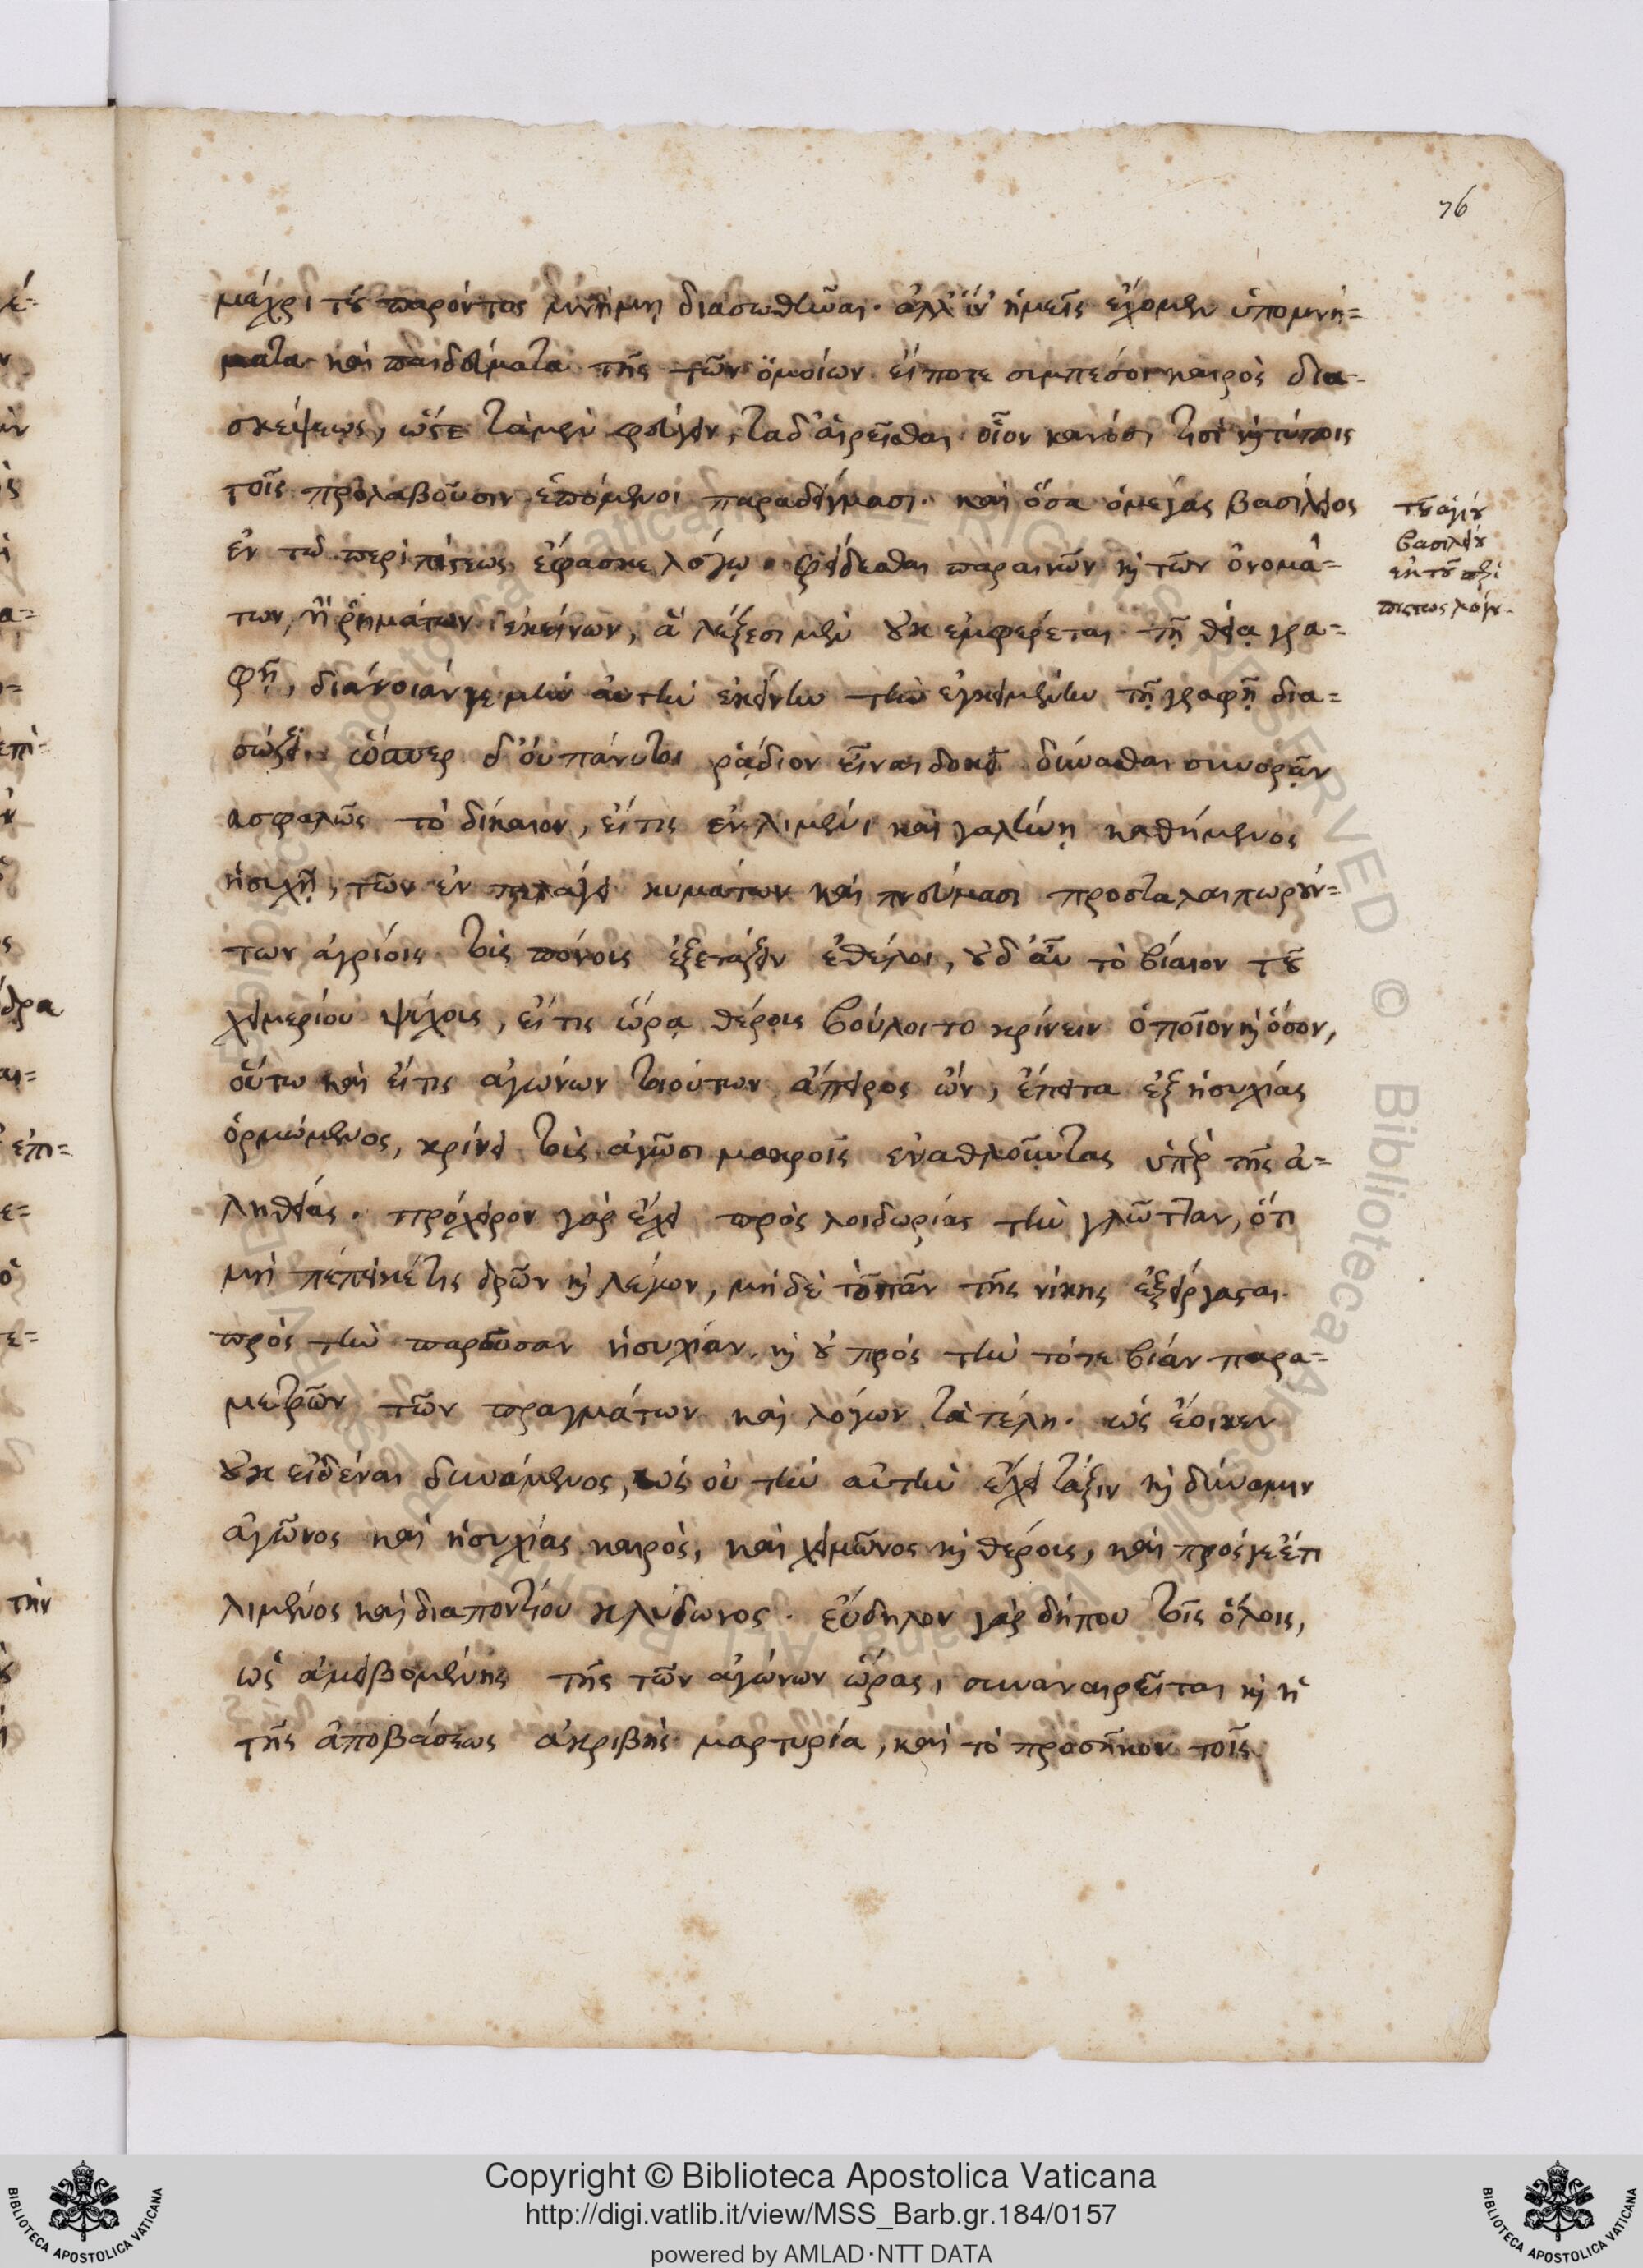 76
μέχρι τοῦ παρόντος μνήμη διασωθῆναι. ἀλλ' ἵν' ἡμεῖς ἔχομεν ὑπομνή=
ματα καὶ παιδεύματα τῆς τῶν ὁμοίων εἴποτε συμπέσοι καιρὸς δια-
σκέψεως, ὥστε τὰ μὲν φεύγειν, τὰ δ' αἱρεῖσθαι οἷον κανόσι τισὶ καὶ τύποις
τοῖς προλαβοῦσιν ἑπόμενοι παραδείγμασι. καὶ ὅσα ὁ μέγας βασίλειος
ἐν τῷ περὶ πίστεως ἔφασκε λόγῳ. φείδεσθαι παραινῶν καὶ τῶν ὀνομά=
των, ἢ ῥημάτων ἐκείνων, ἃ λέξεσι μὲν οὐκ ἐμφέρεται τῇ θείᾳ γρα=
φῇ, διάνοιάν γε μὴν αὐτὴν ἐκείνην τὴν ἐγκειμένην τῇ γραφῇ δια=
σώζει. ὥσπερ δ' οὐ πάνυ τοι ῥᾴδιον εἶναι δοκεῖ δύνασθαι συνορᾶν
ἀσφαλῶς τὸ δίκαιον, εἴτις ἐν λιμένι καὶ γαλήνῃ καθήμενος
ἡσυχῇ, τῶν ἐν πελάγει κυμάτων καὶ πνεύμασι προσταλαιπωρούν=
των ἀγρίοις τοὺς πόνους ἐξετάζειν ἐθέλοι, οὐδ' αὖ τὸ βίαιον τοῦ
χειμερίου ψύχους, εἴ τις ὥρᾳ θέρους βούλοιτο κρίνειν ὁποῖον καὶ ὅσον,
οὕτω καὶ εἴτις ἀγώνων τοιούτων ἄπειρος ὤν, ἔπειτα ἐξ ἡσυχίας
ὁρμώμενος, κρίνει τοὺς ἀγῶσι μακροῖς ἐναθλοῦντας ὑπὲρ τῆς ἀ=
ληθείας. πρόχειρον γὰρ ἔχει πρὸς λοιδωρίας τὴν γλῶτταν, ὅτι
μὴ πέπεικέ τις δρῶν καὶ λέγων, μηδὲ τὸ πᾶν τῆς νίκης ἐξείργασται.
πρὸς τὴν παροῦσαν ἡσυχίαν, καὶ οὐ πρὸς τὴν τότε βίαν παρα=
μετρῶν τῶν πραγμάτων καὶ λόγων τὰ τέλη. ὡς ἔοικεν
οὐκ εἰδέναι δυνάμενος, ὡς οὐ τὴν αὐτὴν ἔχει τάξιν καὶ δύναμιν
ἀγῶνος καὶ ἡσυχίας καιρὸς, καὶ χειμῶνος καὶ θέρους, καὶ πρός γε ἔτι
λιμένος καὶ διαποντίου κλύδωνος. εὔδηλον γὰρ δήπου τοῖς ὅλοις,
ὡς ἀμειβομένης τῆς τῶν ἀγώνων ὥρας, συναναιρεῖται καὶ ἡ
τῆς ἀποβάσεως ἀκριβὴς μαρτυρία, καὶ τὸ προσῆκον τοῖς
τοῦ ἁγίου
βασιλείου
ἐκ τοῦ περὶ
πίστεως λόγου.
Copyright © Biblioteca Apostolica Vaticana
http://digi.vatlib.it/view/MSS_Barb.gr.184/0157
powered by AMLAD·NTT DATA